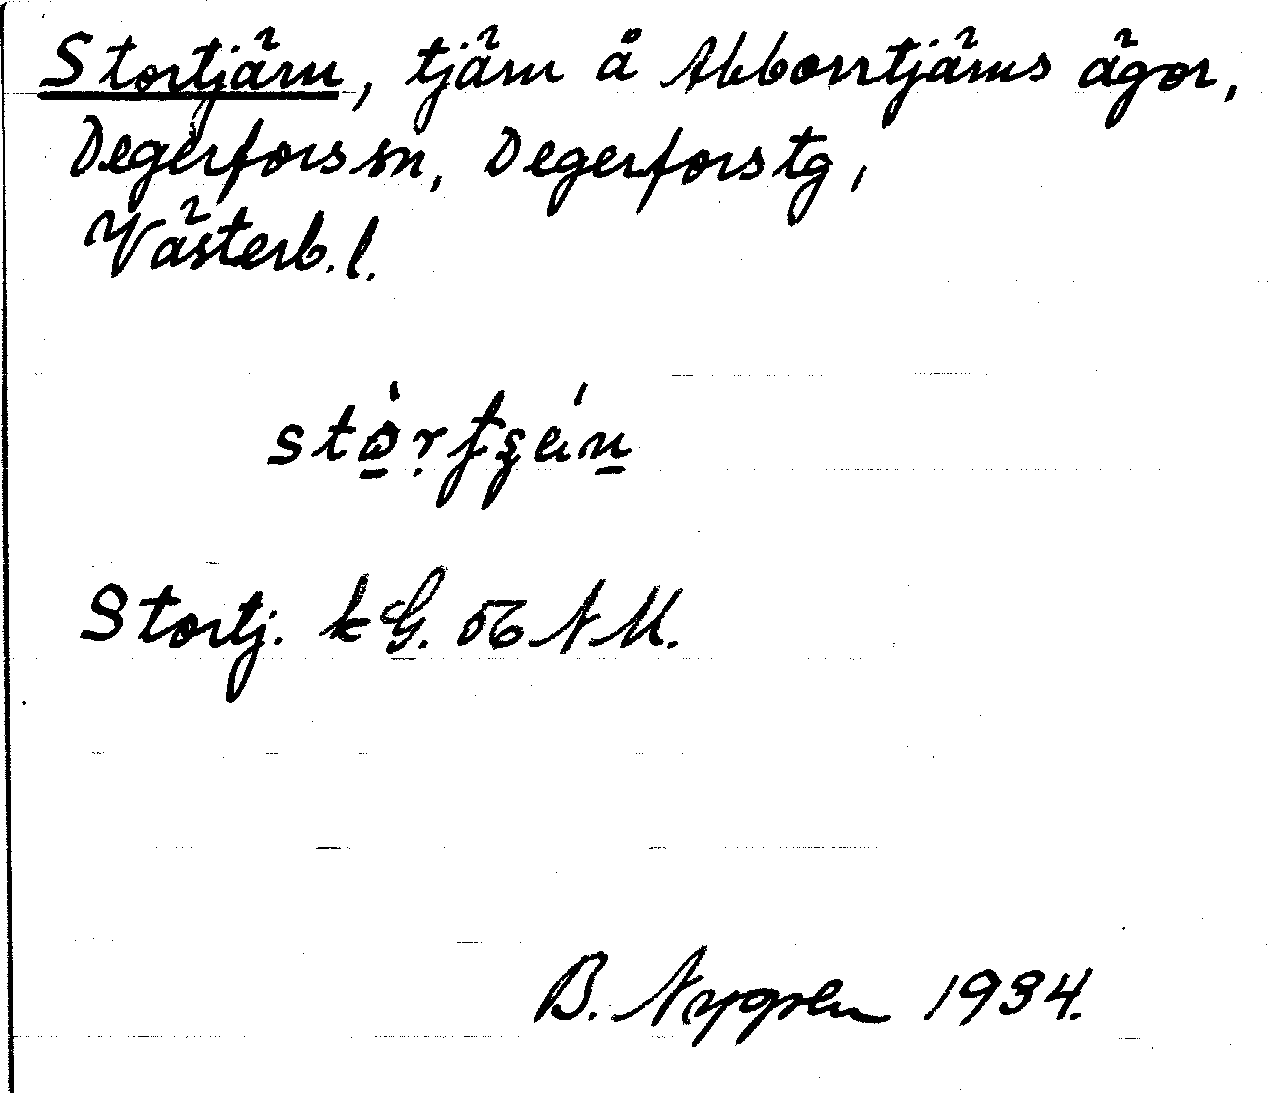 Stortjärn, tjärn å Abborrtjärns ägor,
Degerfors sn, Degerfors tg,
Västerb. l.
Stortj. kG. NM.
B. Nygren 1934.